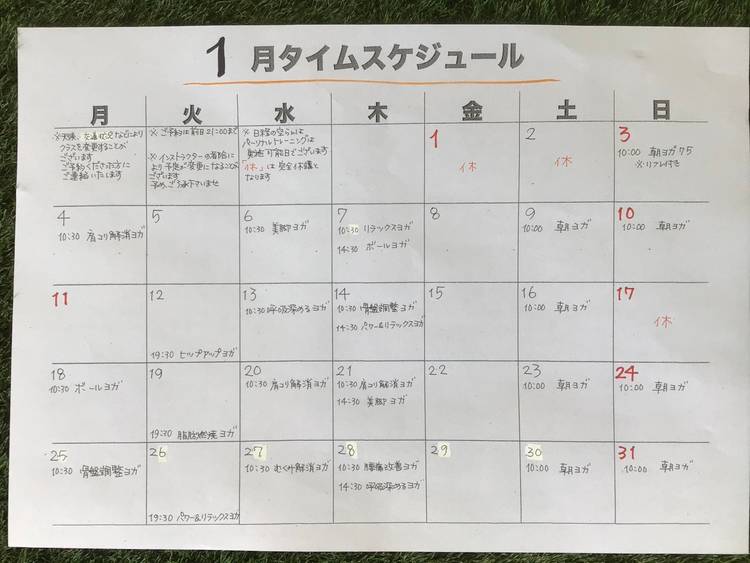 1月タイムスケジュール
月 火 水 木 金 土 日
※天候、交通状況などにより
クラスを変更することが
ございます
ご予約くださった方に
ご連絡いたします
※ご予約は前日21:00まで
※インストラクターの都合に
より予定が変更になることが
ございます
予めご了承下さいませ
※日程の空らんは
パーソナルトレーニングは
実施可能日でございます
「休」は完全休講と
なります
1
休
2
休
3
10:00 朝ヨガ75
※リフレ付き
4
10:30 肩コリ解消ヨガ
5
6
10:30 美脚ヨガ
7
10:30 リラックスヨガ
14:30 ボールヨガ
8
9
10:00 朝ヨガ
10
10:00 朝ヨガ
11
12
19:30 ヒップアップヨガ
13
10:30 呼吸深めるヨガ
14
10:30 骨盤調整ヨガ
14:30 パワー&リラックスヨガ
15
16
10:00 朝ヨガ
17
休
18
10:30 ボールヨガ
19
19:30 脂肪燃焼ヨガ
20
10:30 肩コリ解消ヨガ
21
10:30 肩コリ解消ヨガ
14:30 美脚ヨガ
22
23
10:00 朝ヨガ
24
10:00 朝ヨガ
25
10:30 骨盤調整ヨガ
26
19:30 パワー&リラックスヨガ
27
10:30 むくみ解消ヨガ
28
10:30 腰痛改善ヨガ
14:30 呼吸深めるヨガ
29
30
10:00 朝ヨガ
31
10:00 朝ヨガ